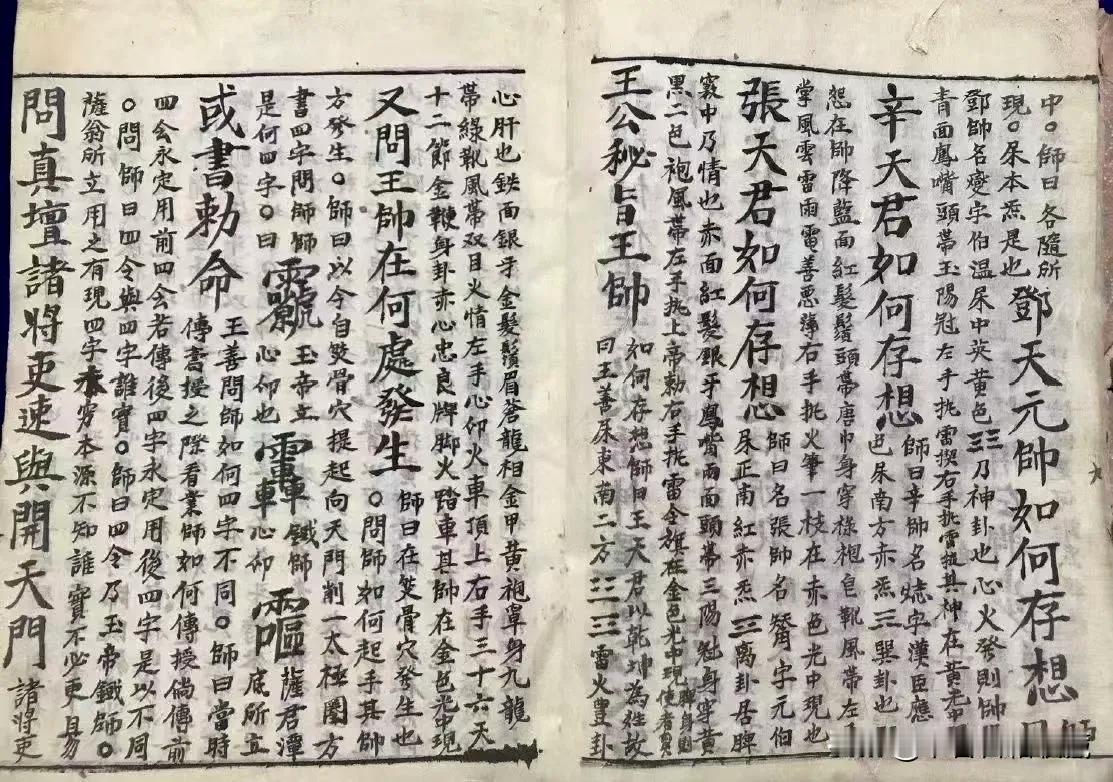 中。師曰各隨所
現。杘本炁是也鄧天元帥如何存想師曰
鄧帥名燮字伯温杘中英黄色☲乃神卦也心火發則帥
青面鳳嘴頭帶玉陽冠左手執雷揳右手執雷
辛天君如何存想師曰辛帥名字漢臣應
也杘南方赤炁☴巽卦也
恕在帥降藍面紅髮鬚頭帶唐巾身穿袍皂靴風帶左
掌風雲雷雨雷善惡簿右手执火筆一枝在赤色光中現也
張天君如何存想師曰名張帥名字元伯
杘正南紅赤炁☲离卦居脾
竅中乃情也赤面紅髮銀牙鳳嘴兩面頭帶三陽魁身穿黄
黒二色袍風帶左手执上帝勅右手执雷令旗在金色光中現
王公秘旨王帥如何存想師曰王天君以乾坤為性故
曰王善杘東南二方☳☲雷火豊卦
心肝也鉄面銀牙金髮鬚眉蒼龍相金甲黄袍罩身九龍
帶綠靴風帶双目火情左手心仰火車頂上右手三十六天
十二節金鞭身卦赤心忠良牌脚火踏車其帥在金色光中現
又問王帥在何處發生師曰在笅骨穴發生也
。問師如何起手其帥
方發生。師曰以今自笅骨穴提起向天門削一太極圈方
書四字問師師玉帝立鐵師薩君潭
是何四字。曰心仰也心仰底所立
或書勅命王善問師如何四字不同。師曰當時
傳書授之際看業師如何傳授倘傳前
四会永定用前四会若傳後四字永定用後四字是以不同
。問師曰四令與四字誰寶。師曰四令乃玉帝鐵師。
薩翁所立用之有現四字本穷本源不知誰寶不必更易
問真壇諸將吏速與開天門諸將吏